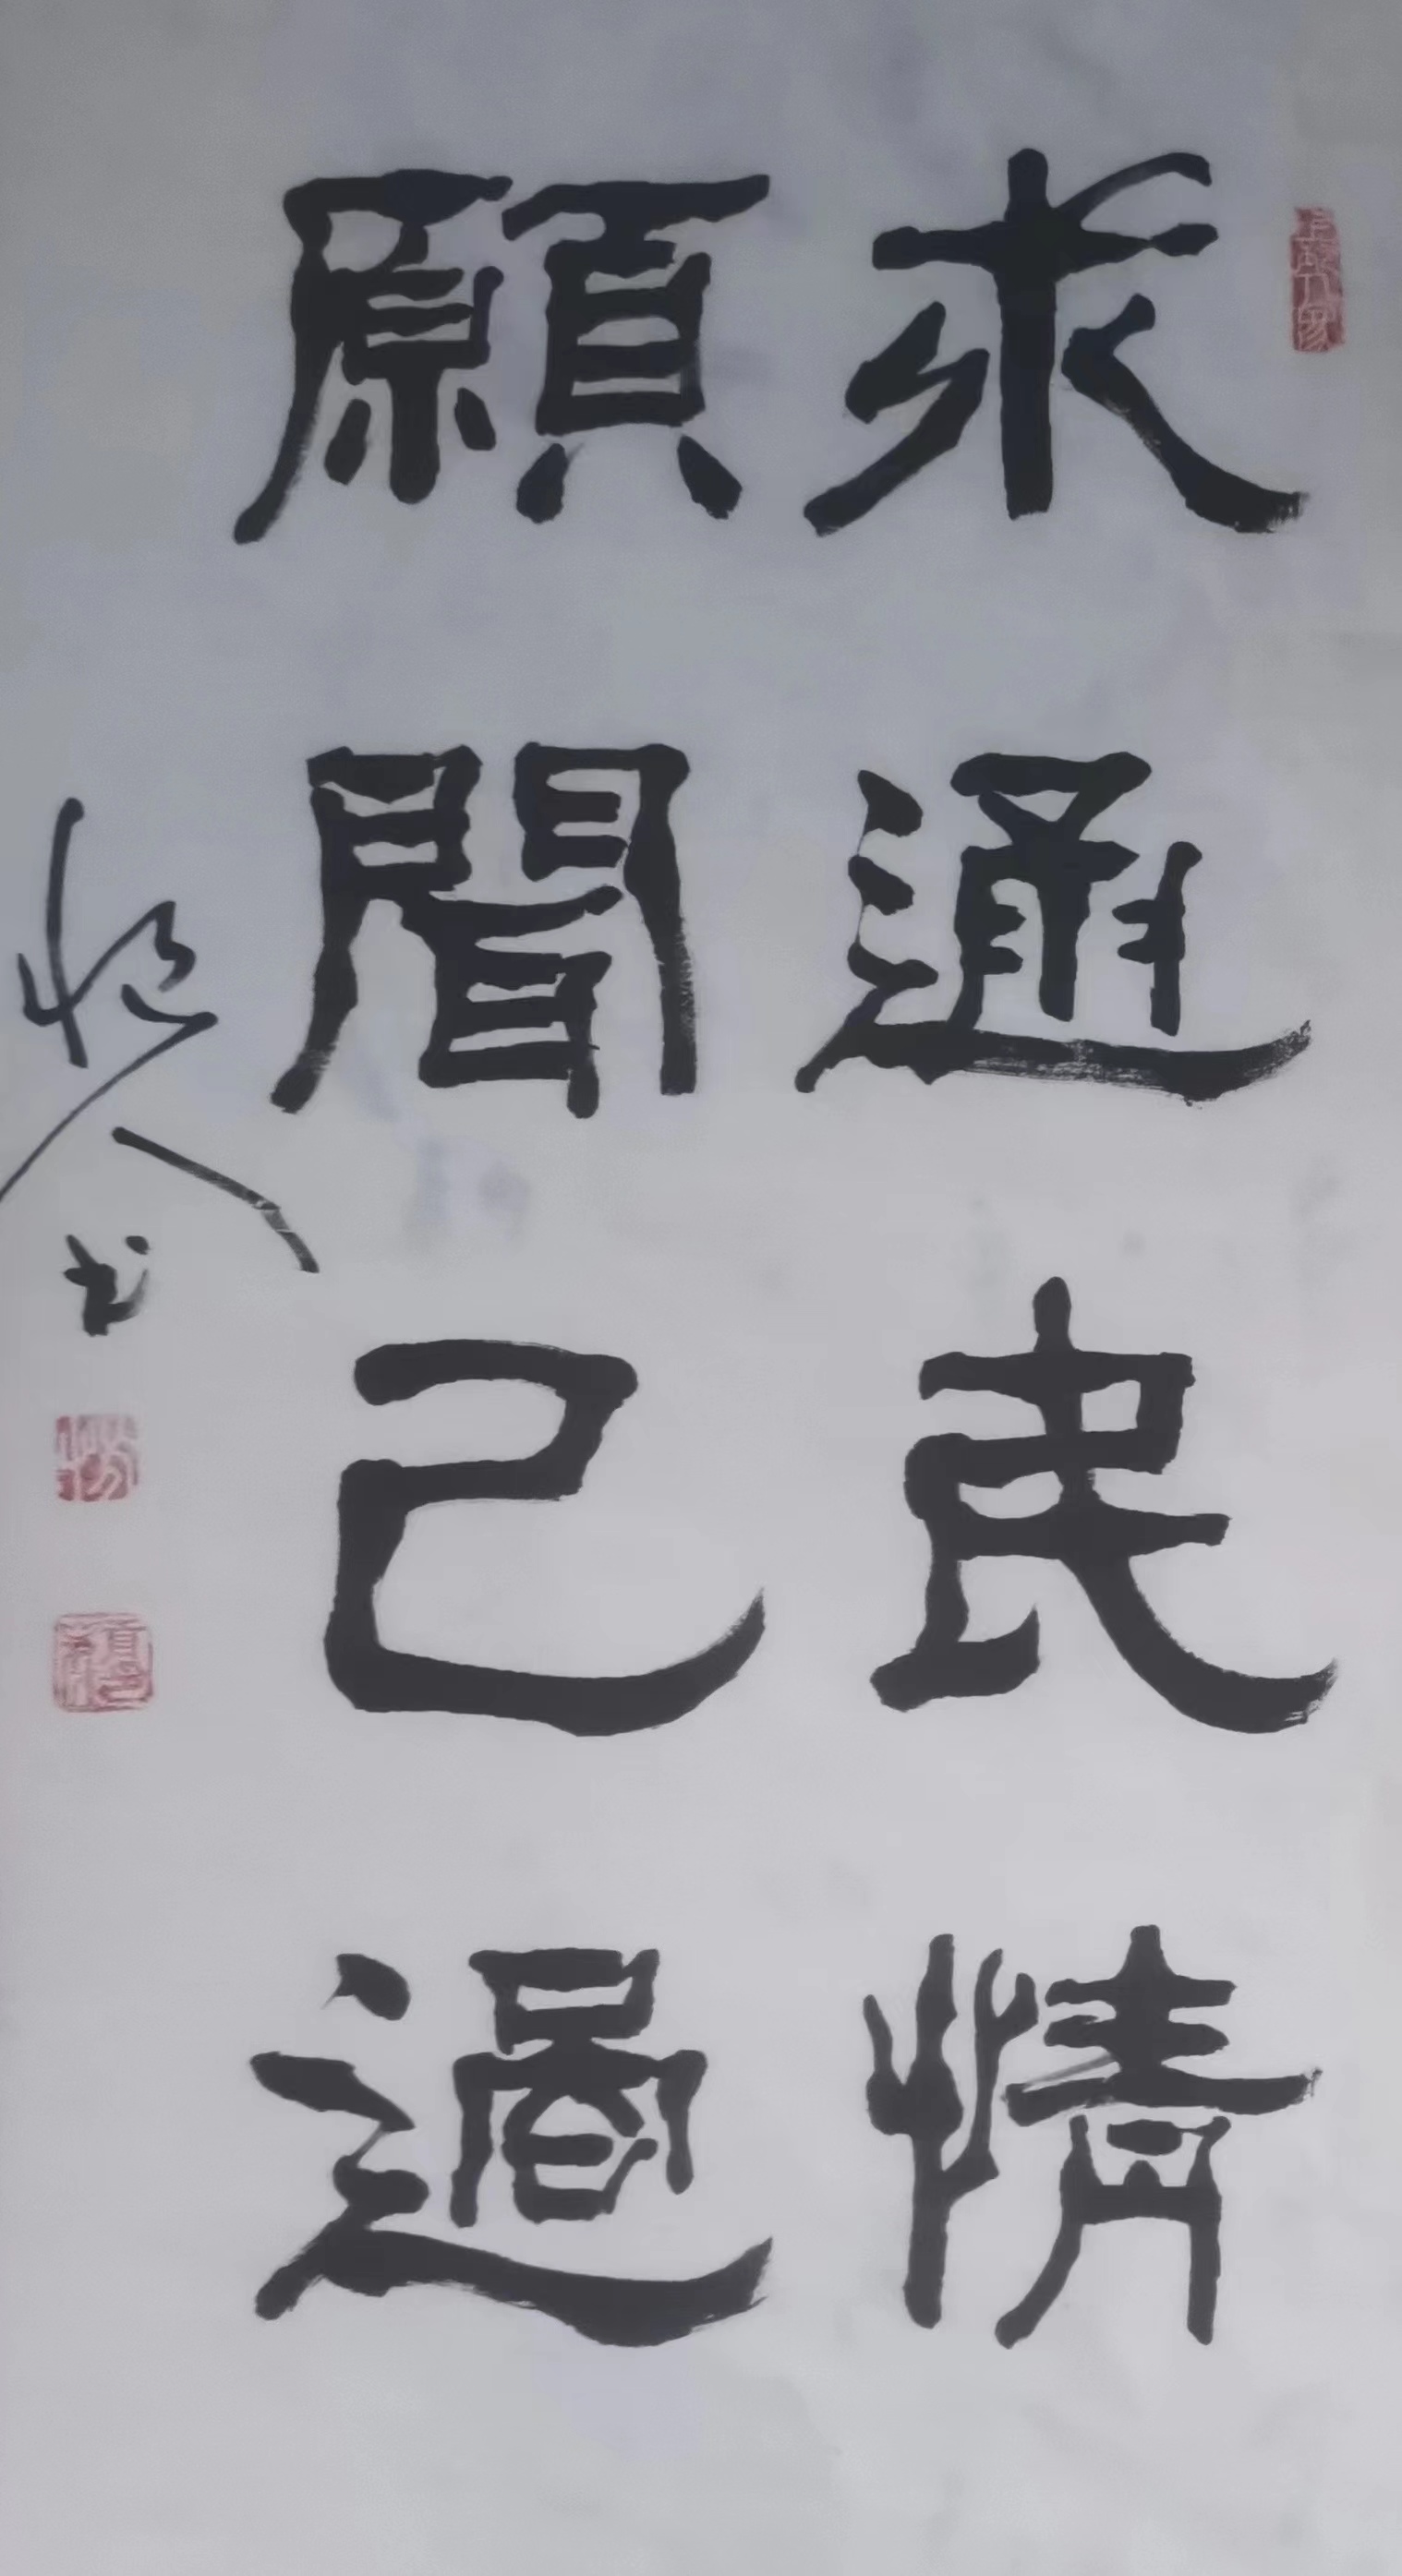 求通民情
願聞己過